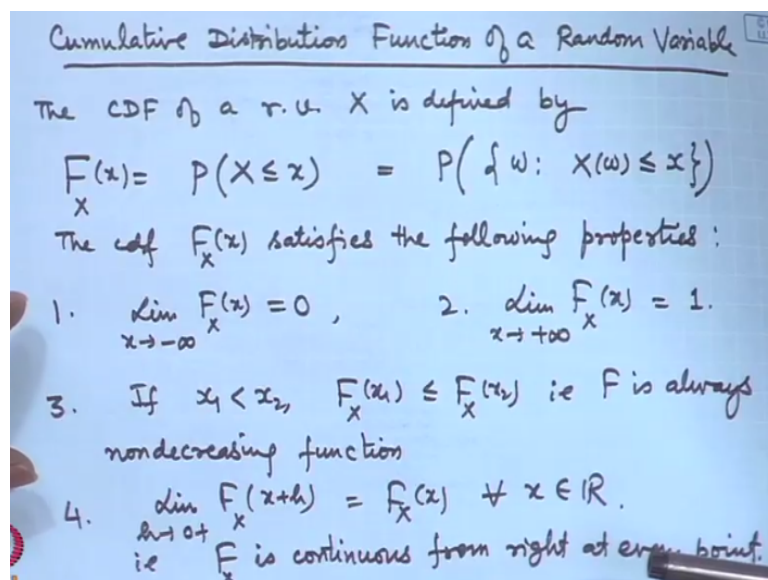 Cumulative Distribution Function of a Random Variable
The CDF of a r.u. X is defined by
F_X(x) = P(X ≤ x) = P({ω: X(ω) ≤ x})
The cdf F_X(x) satisfies the following properties:
1. Lim_{x→-∞} F_X(x) = 0, 2. Lim_{x→+∞} F_X(x) = 1.
3. If x₁ < x₂, F_X(x₁) ≤ F_X(x₂) ie F is always
nondecreasing function
4. Lim_{h→0+} F_X(x+h) = F_X(x) ∀ x ∈ ℝ.
ie F_X is continuous from right at every point.